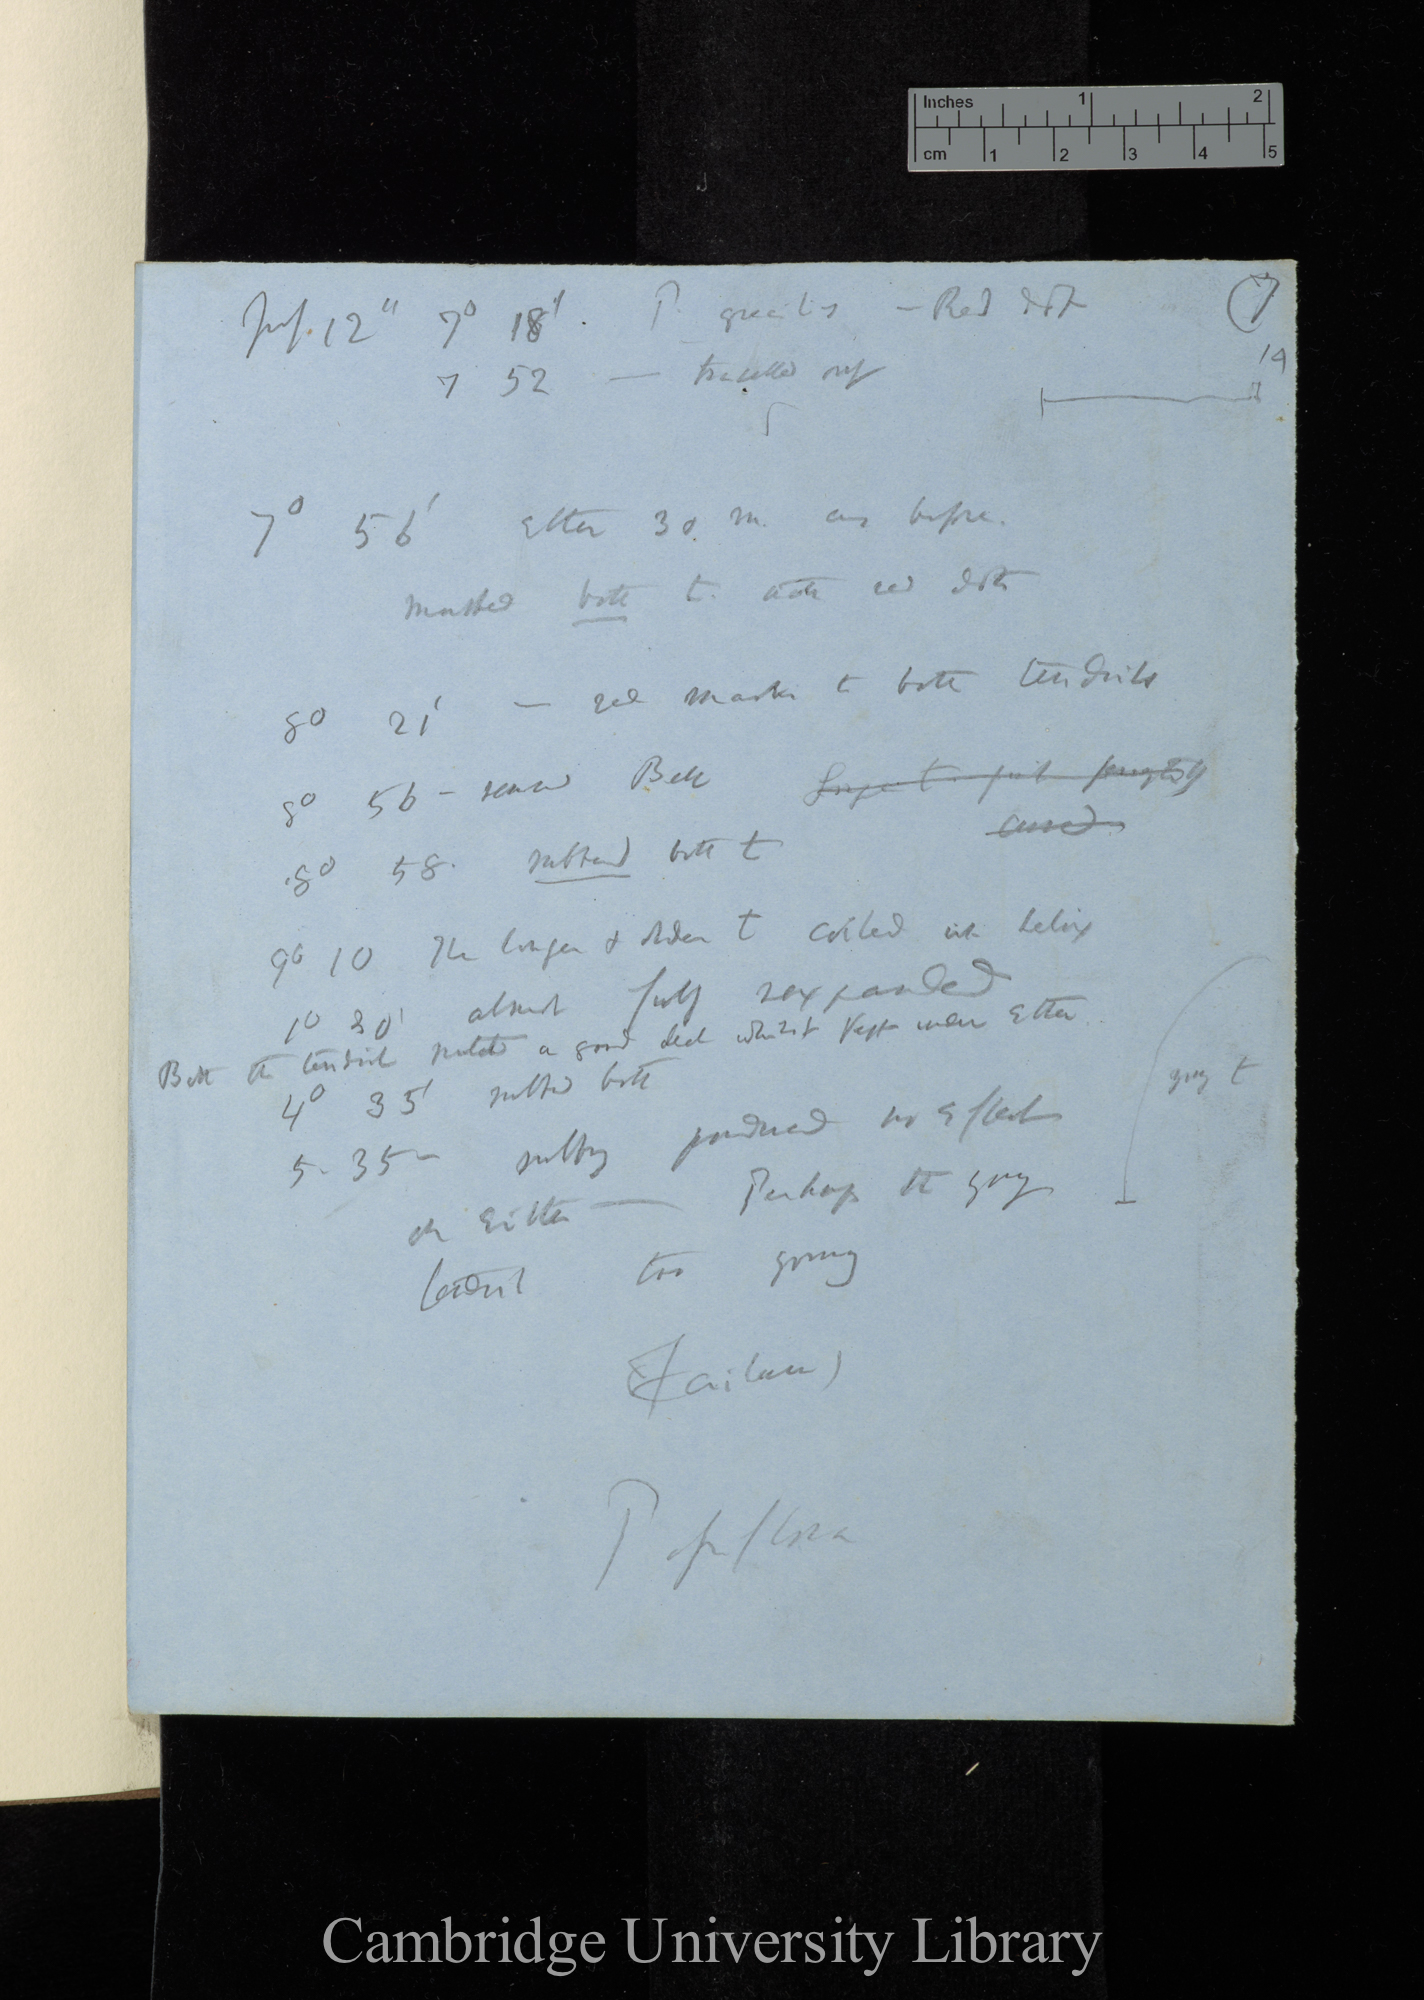 Inches 1 2
cm 1 2 3 4 5
7
12th 7° 18'. P. gracilis — Red dot
19
7 52 —
7° 56' Ether 30 m. as before.
Marked both t. with red dots
8° 21' — red marks to both tendrils
8° 56 — removed Bell
8° 58. rubbed both t
9° 10 The longer & older t coiled in helix
1° 30' almost fully reexpanded
Both the tendrils rotated a good deal whilst kept under Ether
4° 35' rubbed both
young t
5. 35 — rubbing produced no effect
on Either — Perhaps the young
tendril too young
(Failure)
P
Cambridge University Library